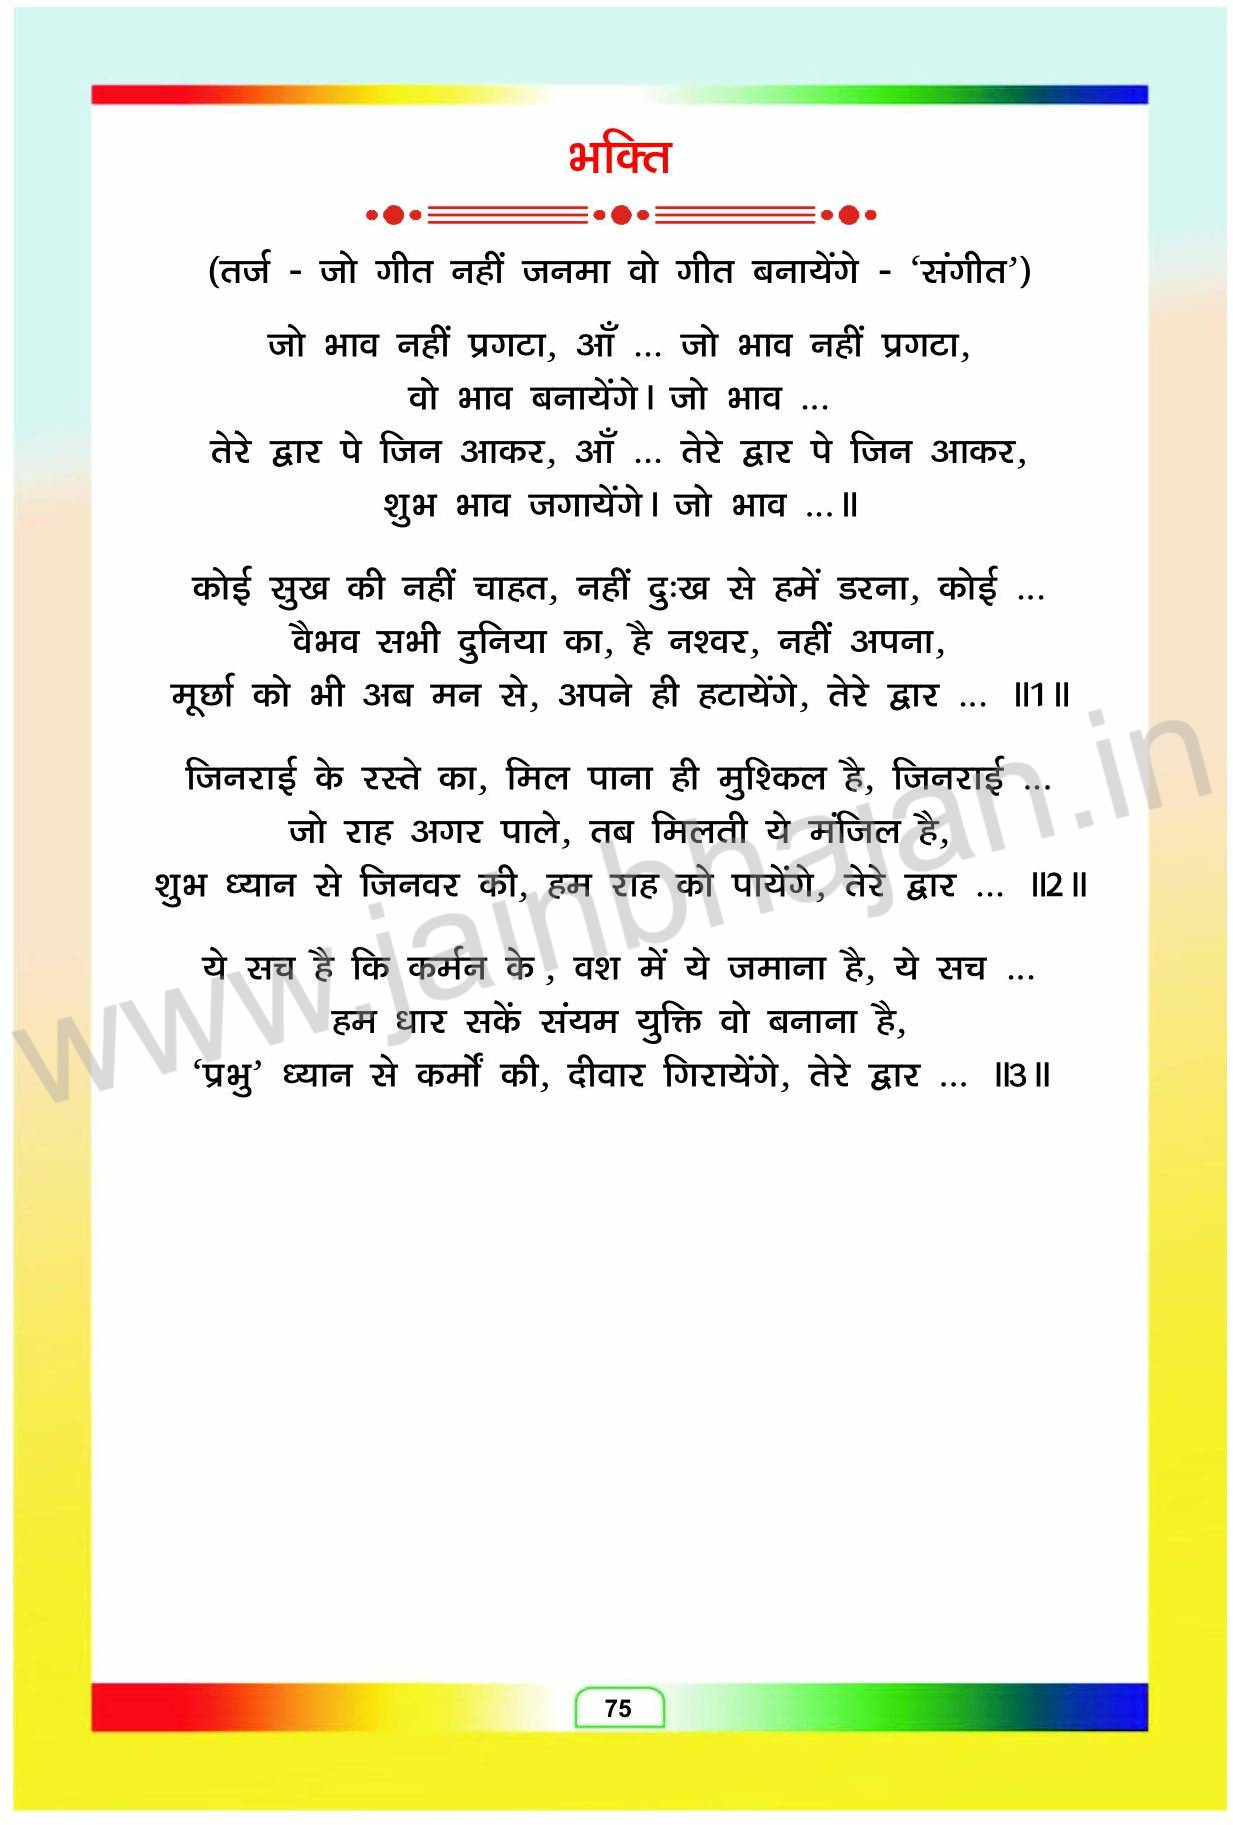 भक्ति
(तर्ज - जो गीत नहीं जनमा वो गीत बनायेंगे - ‘संगीत’)
जो भाव नहीं प्रगटा, आँ ... जो भाव नहीं प्रगटा,
वो भाव बनायेंगे। जो भाव ...
तेरे द्वार पे जिन आकर, आँ ... तेरे द्वार पे जिन आकर,
शुभ भाव जगायेंगे। जो भाव ...॥
कोई सुख की नहीं चाहत, नहीं दुःख से हमें डरना, कोई ...
वैभव सभी दुनिया का, है नश्वर, नहीं अपना,
मूर्छा को भी अब मन से, अपने ही हटायेंगे, तेरे द्वार ... ॥1॥
जिनराई के रस्ते का, मिल पाना ही मुश्किल है, जिनराई ...
जो राह अगर पाले, तब मिलती ये मंजिल है,
शुभ ध्यान से जिनवर की, हम राह को पायेंगे, तेरे द्वार ... ॥2॥
ये सच है कि कर्मन के , वश में ये जमाना है, ये सच ...
हम धार सकें संयम युक्ति वो बनाना है,
‘प्रभु’ ध्यान से कर्मों की, दीवार गिरायेंगे, तेरे द्वार ... ॥3॥
www.jainbhajan.in
75